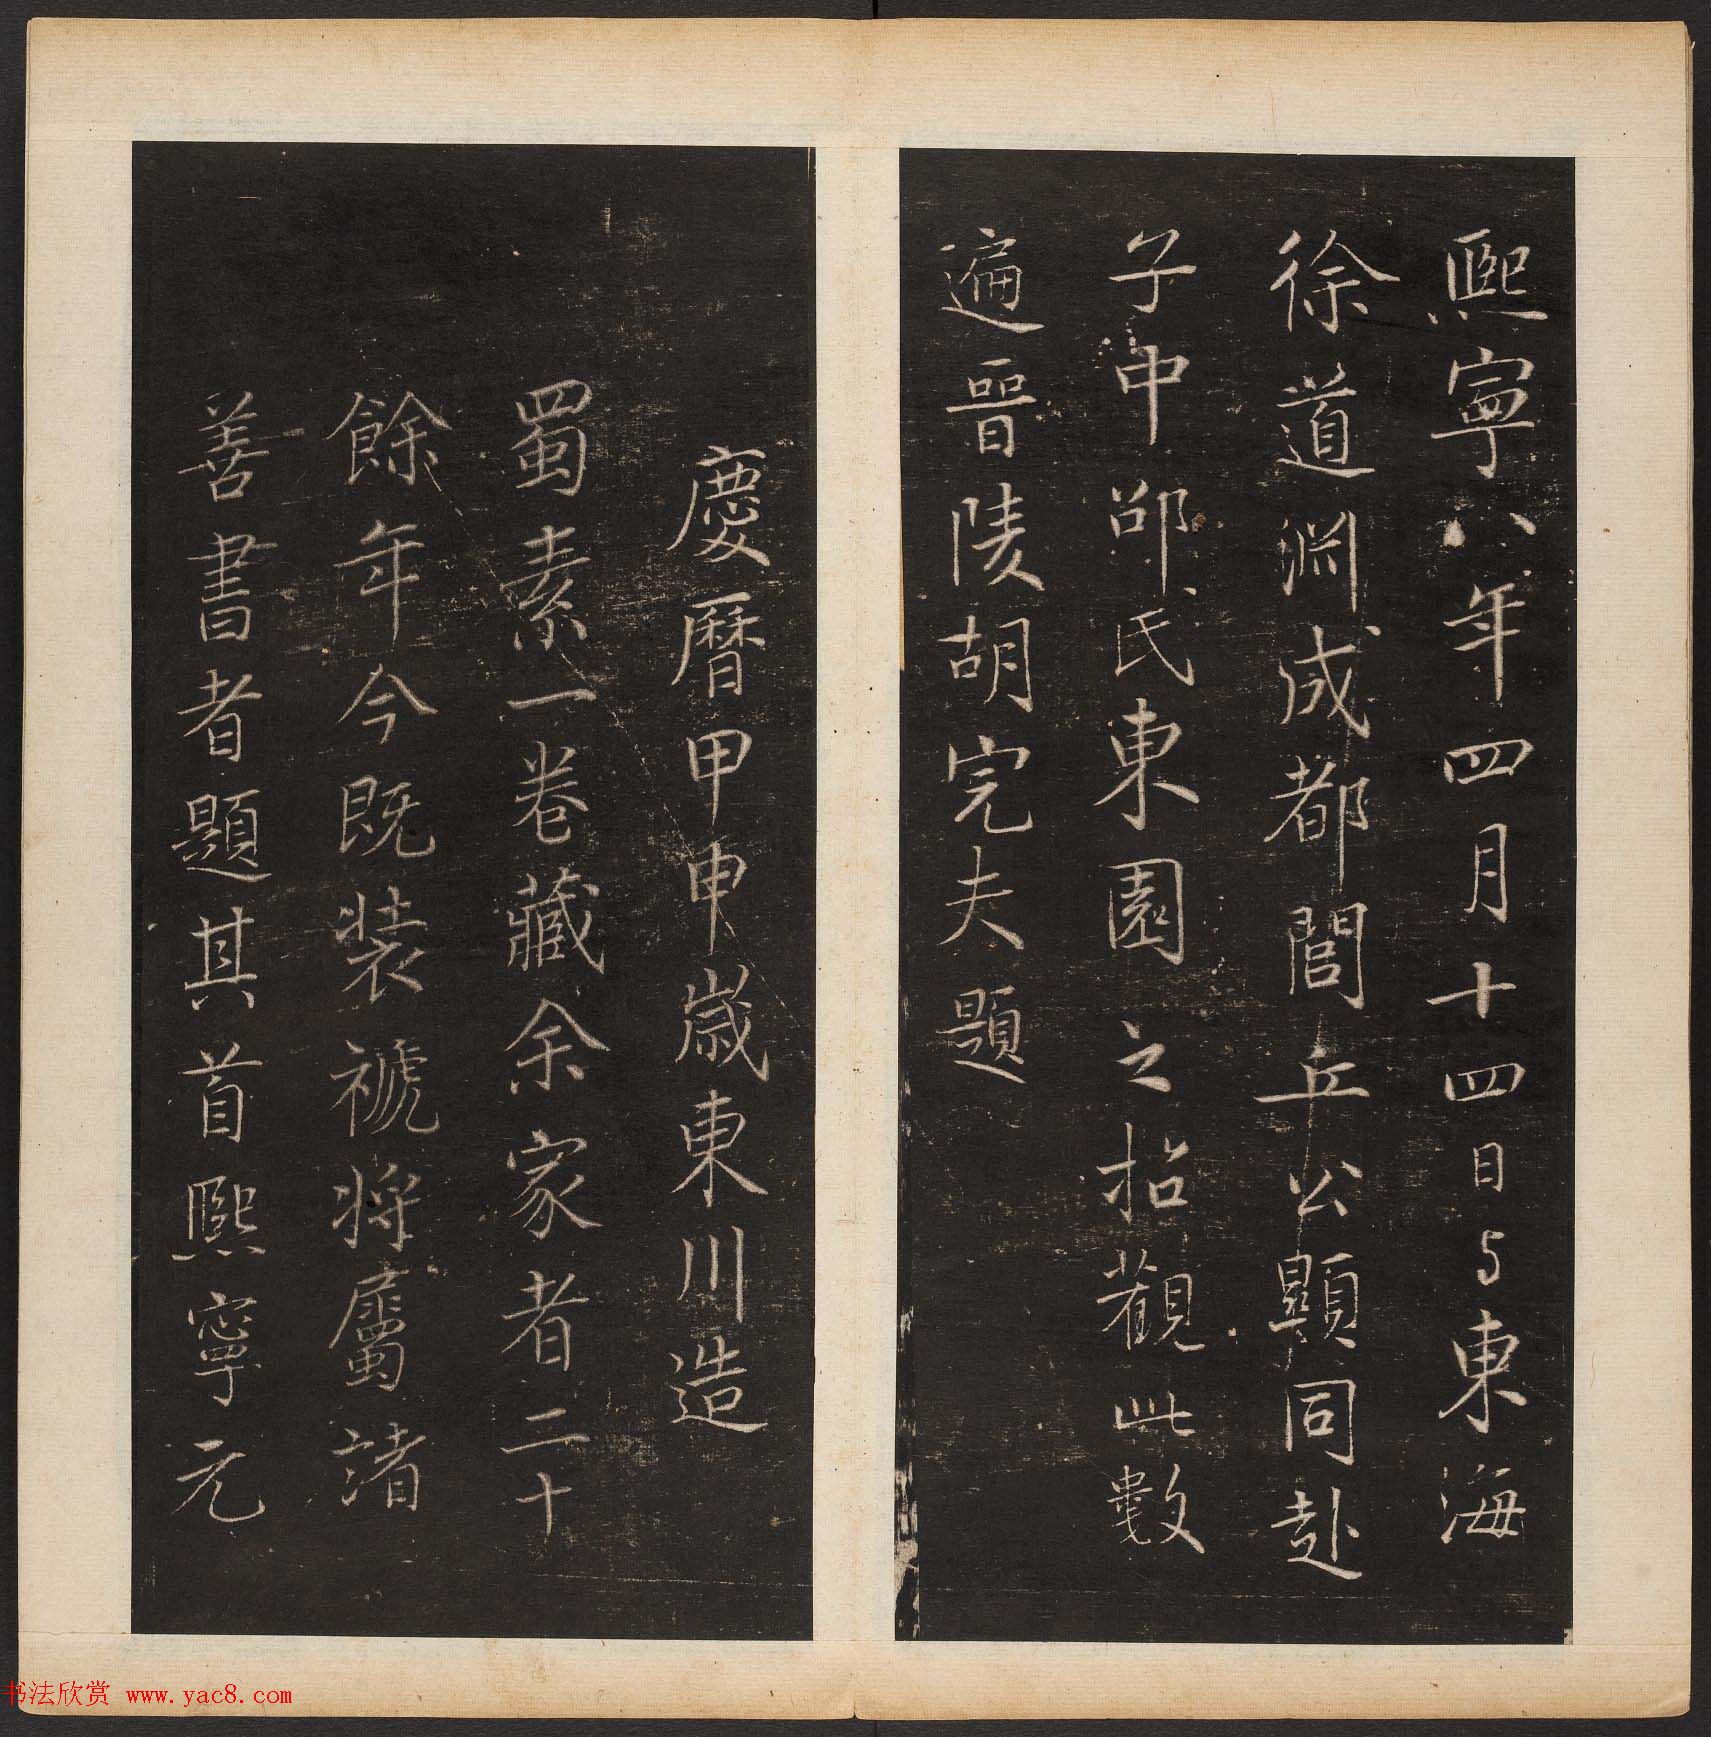 熙寧八年四月十四日与東海
徐道渊成都閭丘公顯同赴
子中邵氏東園之招觀此數
遍晉陵胡完夫題
慶曆甲申歲東川造
蜀素一卷藏余家者二十
餘年今既装褫将屬諸
善書者題其首熙寧元
书法欣赏 www.yac8.com